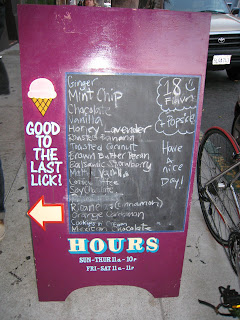 Ginger
Mint Chip
Chocolate
Vanilla
Honey Lavender
Roasted Banana
Toasted Coconut
Brown Butter Pecan
Balsamic Strawberry
Vanilla
Coffee
Soy Chocolate
Ricanelas (cinnamon)
Orange Cardamom
Cookies n' Cream
Mexican Chocolate
18¢
Flavors
+ Popsicles
Have
a
nice
Day!
GOOD
TO THE
LAST
LICK!
HOURS
SUN-THUR 11A-10P
FRI-SAT 11A-11P